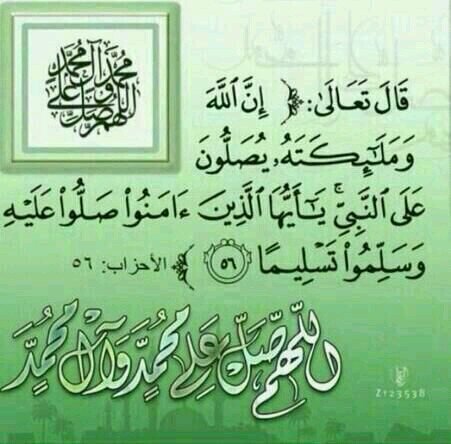 اللهم صل على محمد وآل محمد
قَالَ تَعَالَىٰ: ﴿ إِنَّ ٱللَّهَ
وَمَلَـٰٓئِكَتَهُۥ يُصَلُّونَ
عَلَى ٱلنَّبِىِّ ۚ يَـٰٓأَيُّهَا ٱلَّذِينَ ءَامَنُوا۟ صَلُّوا۟ عَلَيْهِ
وَسَلِّمُوا۟ تَسْلِيمًا ٥٦ ﴾ الأحزاب: ٥٦
اللَّهُمَّ صَلِّ عَلَى مُحَمَّدٍ وَآلِ مُحَمَّدٍ
Z123538